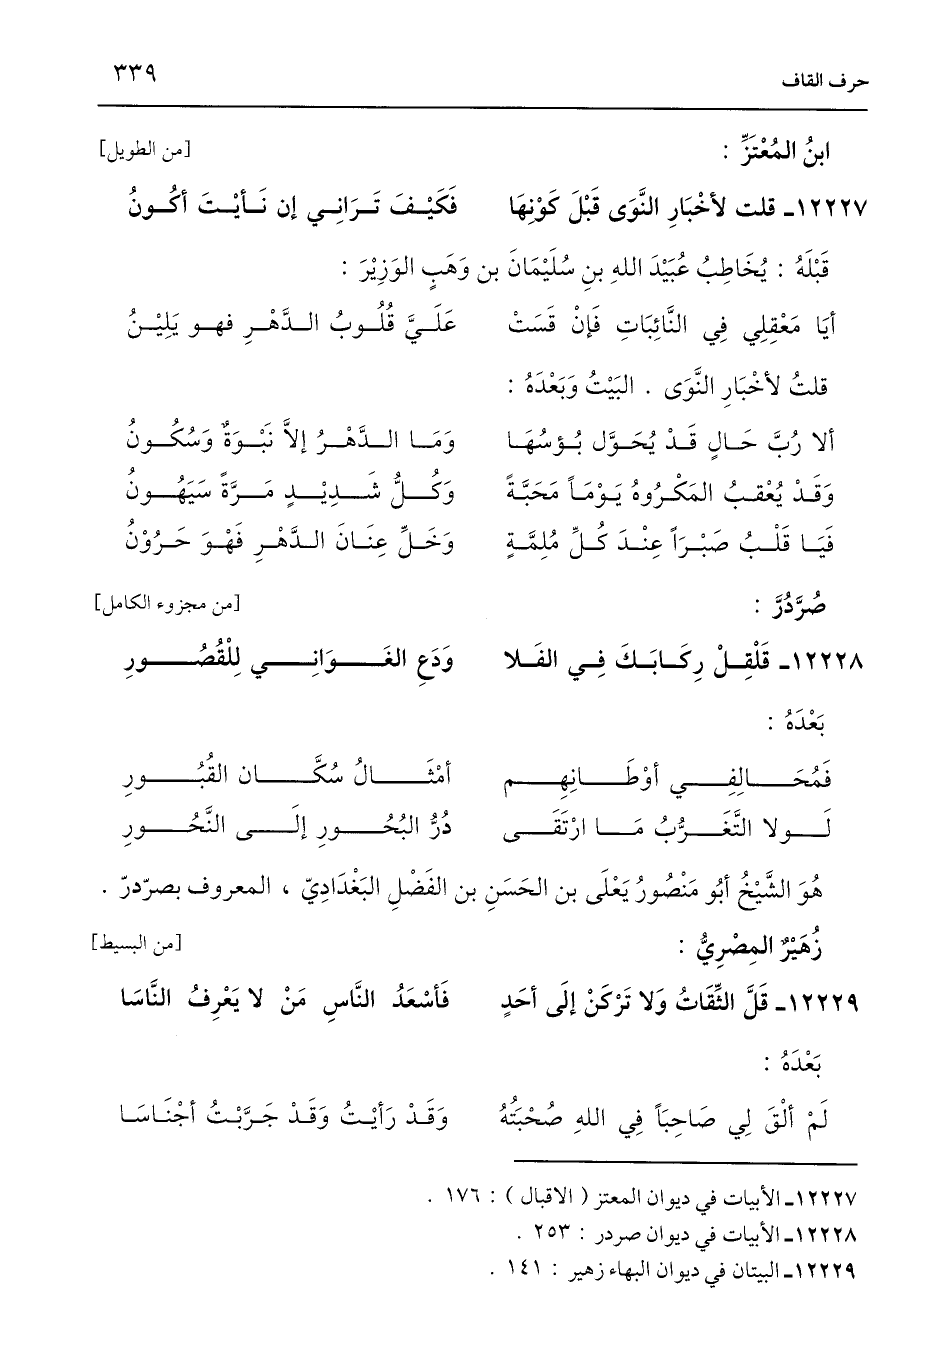 حرف القاف ٣٣٩
ابنُ المُعْتَزِّ : [من الطويل]
١٢٢٢٧ـ قلت لأخْبَارِ النَّوَى قَبْلَ كَوْنِهَا فَكَيْفَ تَرَانِي إن نَأيْتَ أكُونُ
قَبْلَهُ : يُخَاطِبُ عُبَيْدَ اللهِ بنِ سُلَيْمَانَ بن وَهَبٍ الوَزِيْرَ :
أيَا مَعْقِلِي فِي النَّائِبَاتِ فَإنْ قَسَتْ عَلَيَّ قُلُوبُ الدَّهْرِ فهو يَلِيْنُ
قلتُ لأخْبَارِ النَّوَى . البَيْتُ وَبَعْدَهُ :
ألا رُبَّ حَالٍ قَدْ يُحَوَّل بُؤسُهَا وَمَا الدَّهْرُ إلاَّ نَبْوَةٌ وَسُكُونُ
وَقَدْ يُعْقبُ المَكْرُوهُ يَوْمَاً مَحَبَّةً وَكُلُّ شَدِيْدٍ مَرَّةً سَيَهُونُ
فَيَا قَلْبُ صَبْرَاً عِنْدَ كُلِّ مُلِمَّةٍ وَخَلِّ عِنَانَ الدَّهْرِ فَهْوَ حَرُوْنُ
صُرَّدُرَّ : [من مجزوء الكامل]
١٢٢٢٨ـ قَلْقِلْ رِكَابَكَ فِي الفَلا وَدَعِ الغَوَانِي لِلْقُصُورِ
بَعْدَهُ :
فَمُحَالِفِي أوْطَانِهِم أمْثَالُ سُكَّانِ القُبُورِ
لَولا التَّغَرُّبُ مَا ارْتَقَى دُرُّ البُحُورِ إلَى النَّحُورِ
هُوَ الشَّيْخُ أبُو مَنْصُورُ يَعْلَى بن الحَسَنِ بن الفَضْلِ البَغْدَادِيّ ، المعروف بصرّدرّ .
زُهَيْرٌ المِصْرِيُّ : [من البسيط]
١٢٢٢٩ـ قَلَّ الثِّقَاتُ وَلا تَرْكَنْ إلَى أحَدٍ فَأسْعَدُ النَّاسِ مَنْ لا يَعْرِفُ النَّاسَا
بَعْدَهُ :
لَمْ ألْقَ لِي صَاحِبَاً فِي اللهِ صُحْبَتُهُ وَقَدْ رَأيْتُ وَقَدْ جَرَّبْتُ أجْنَاسَا
١٢٢٢٧ـ الأبيات في ديوان المعتز ( الاقبال ) : ١٧٦ .
١٢٢٢٨ـ الأبيات في ديوان صردر : ٢٥٣ .
١٢٢٢٩ـ البيتان في ديوان البهاء زهير : ١٤١ .